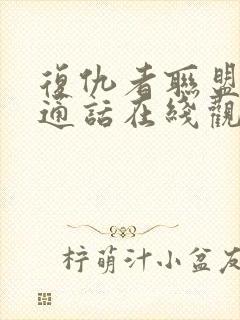 復仇者聯盟
通話在綫觀
梓萌汁小盆友